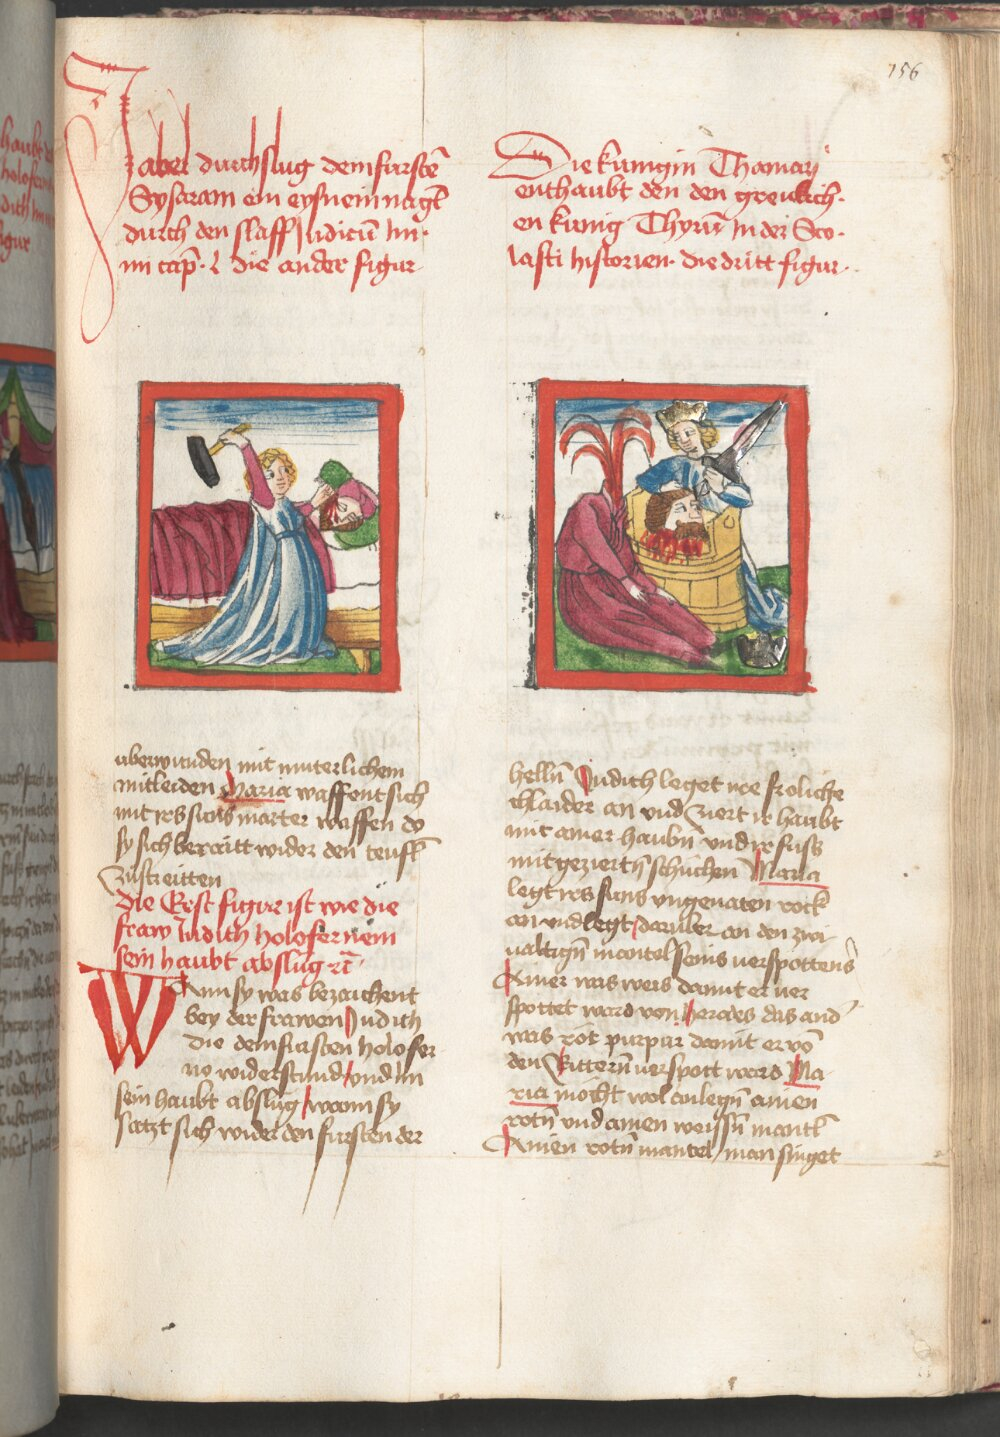 156
Jabel durchslug dem fürstē
Sysaram ein eysnein nagl
durch den slaff Judicū im
iiii cap. Die ander figur
Die kunigin Thamary
enthaubt den den greulich-
en kunig Thyrū In der Sco-
lasti historien. die dritt figur.
uberwunden mit muterlichem
mitleiden Maria waffent sich
mit irs suns marter waffen do
sy sich beraitt wider den teufl
Zustreitten
die Erst figur ist wie die
fraw Judith holofernem
sein haubt abslug ꝛc̄
Wann sy was bezaichent
bey der frawen Judith
die dem fursten holofer
no widerstund und im
sein haubt abslug wann sy
satzt sich wider den fursten der
hellñ Judith leget ire froliche
chlaider an und ziert ir haubt
mit ainer haubñ und ir fuss
mit geziertñ schuchen Maria
legt irs suns ungenaten rock
an und legt daruber an den zwi
ualtigñ mantel seins uerspottens
Ainer was weis damit er uer
spottet ward von herodes das and
was rot purpur damit er võ
den Rittern uerspott ward Ma
ria mocht wol anlegñ ainen
rotñ und ainen weissñ mantl
Ainen rotñ mantel man singet